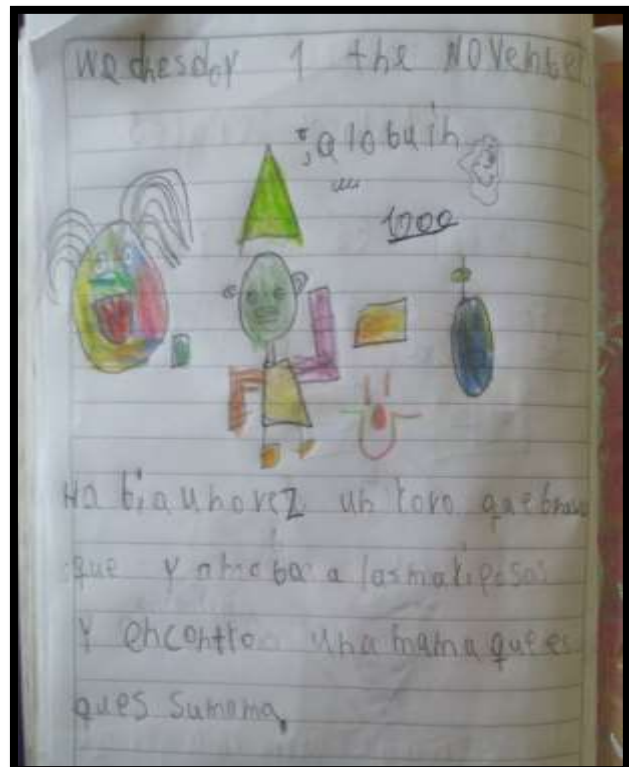 Wednesday 1 the Novembe
alobuih
1000
Ha bia unavez un toro que brava
que y amaba a las mariposas
y encontro una mama que es
ques sumama,